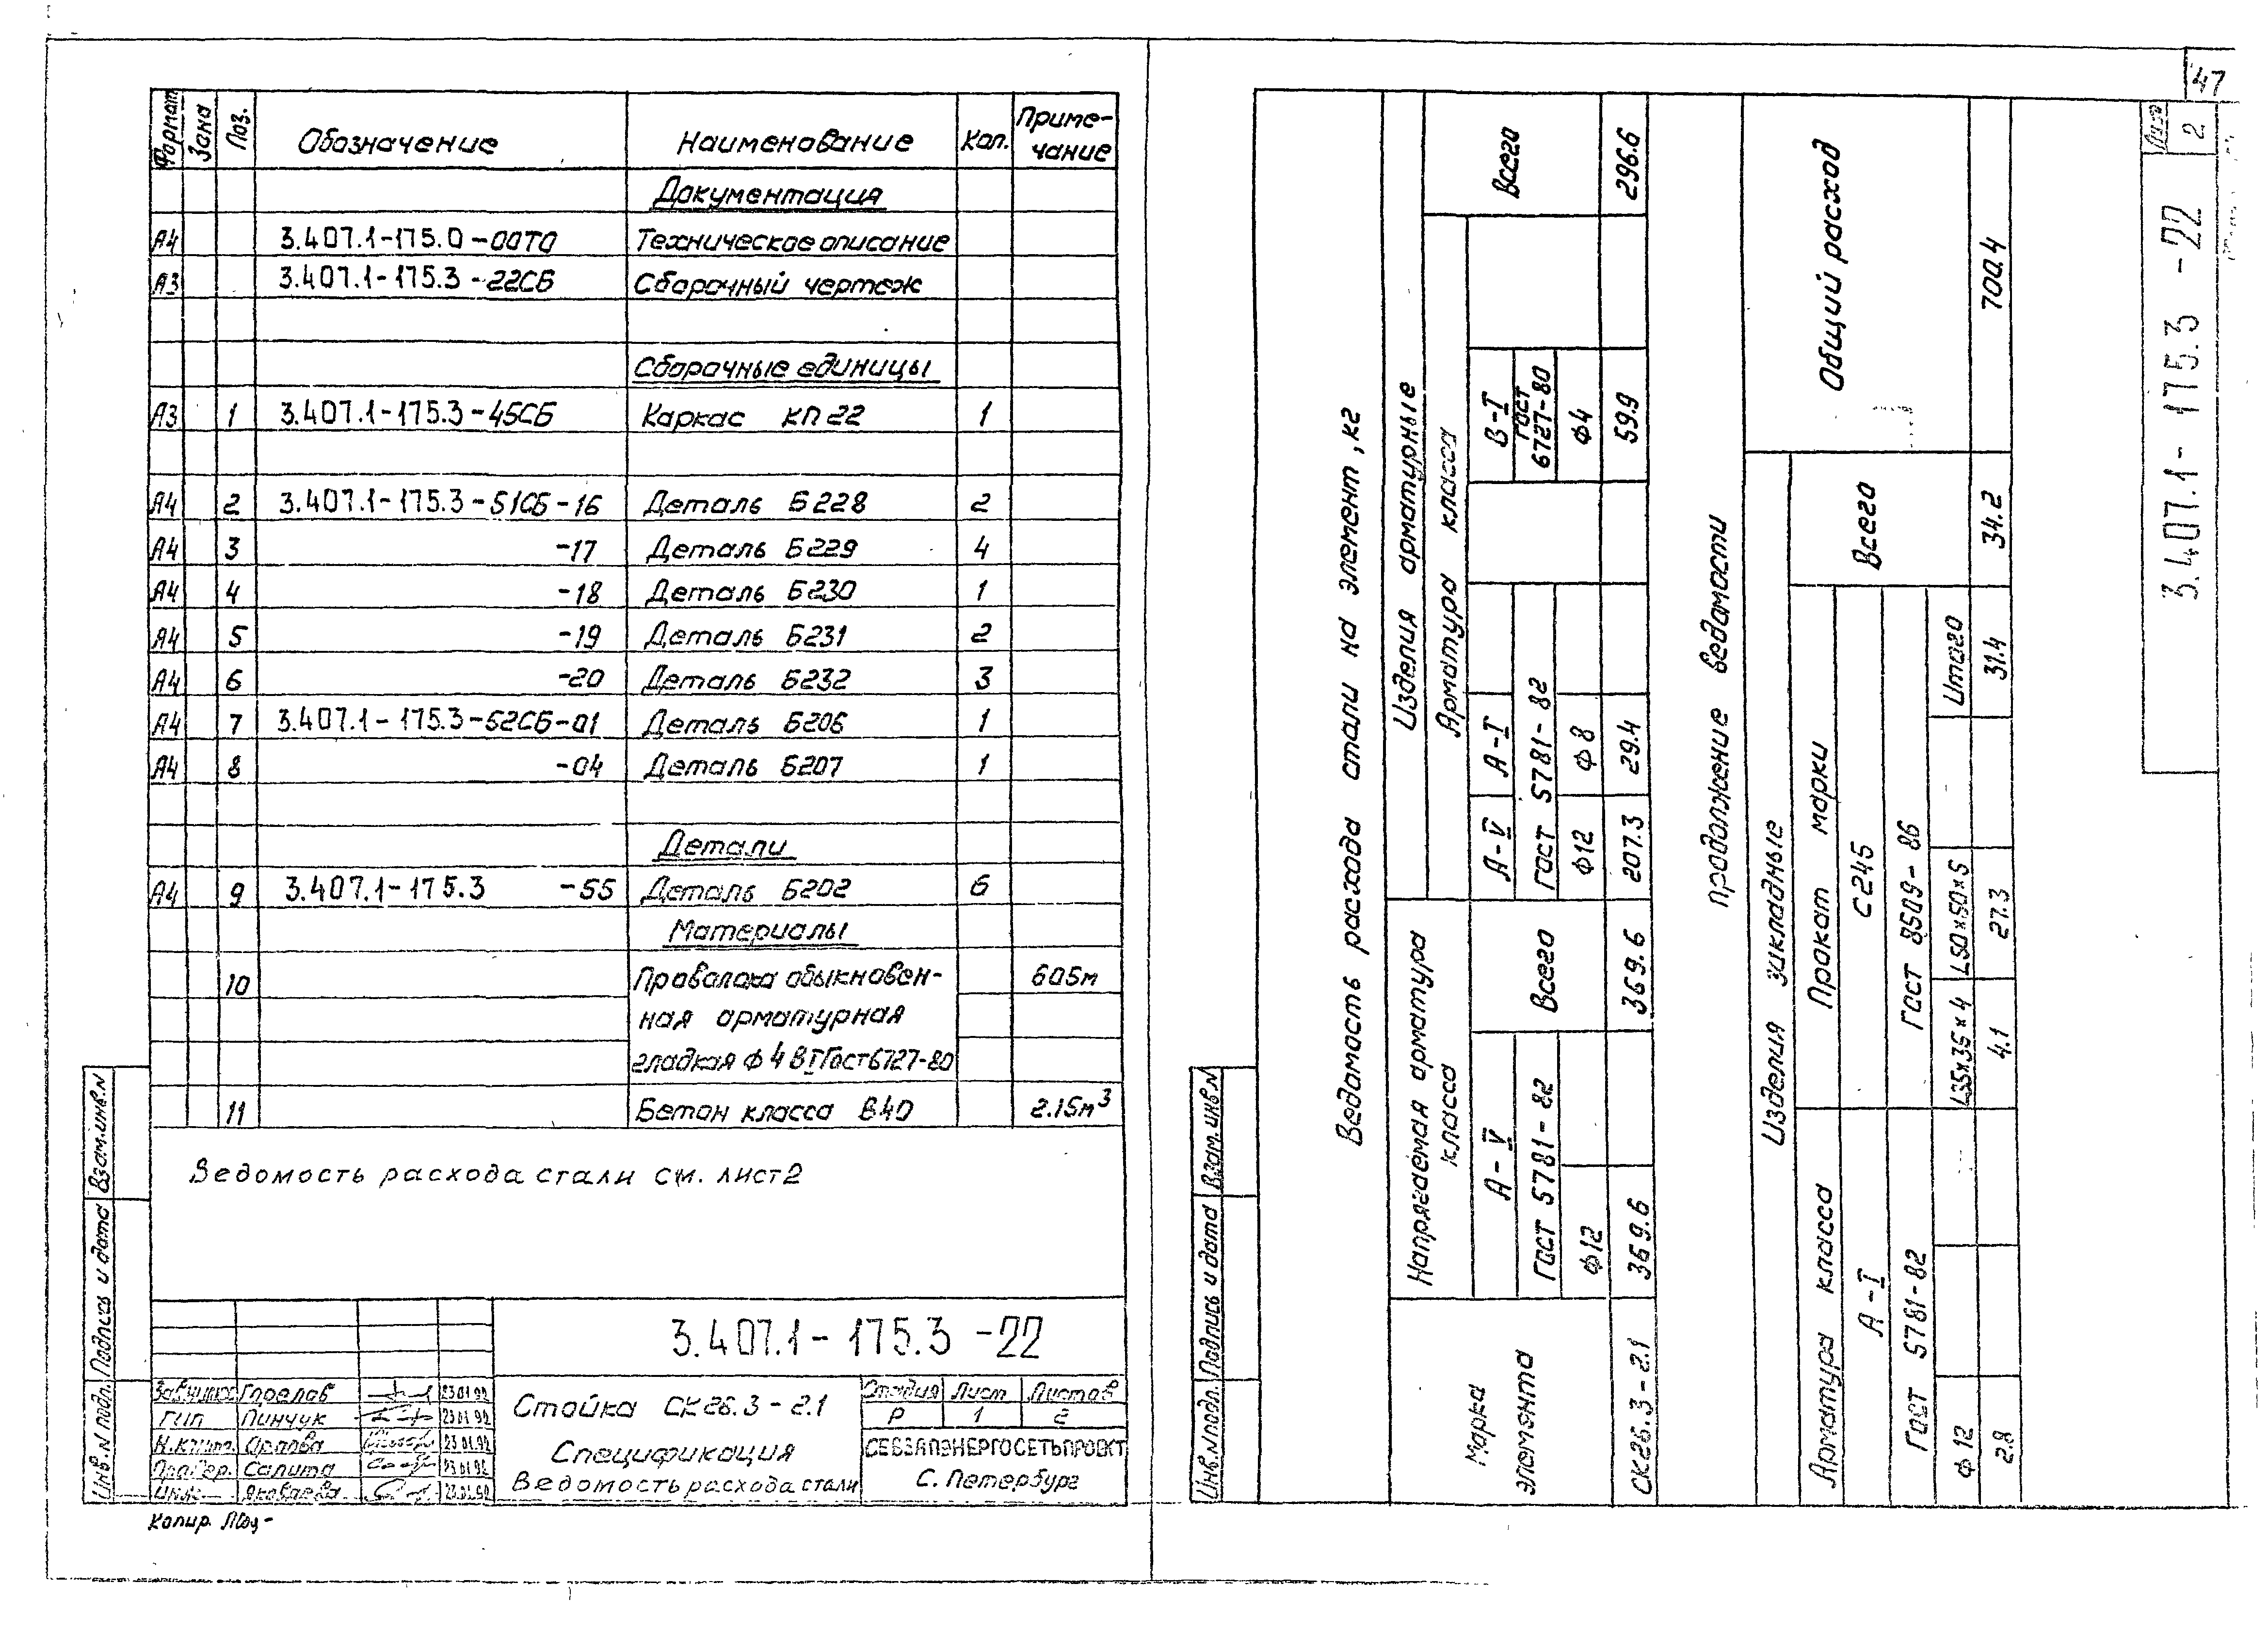 47
Формат Зона Поз. Обозначение Наименование Кол. Приме-
чание
Документация
А4 3.407.1-175.0-00ТО Техническое описание
А3 3.407.1-175.3-22СБ Сборочный чертеж
Сборочные единицы
А3 1 3.407.1-175.3-45СБ Каркас КП22 1
А4 2 3.407.1-175.3-51СБ-16 Деталь Б228 2
А4 3 -17 Деталь Б229 4
А4 4 -18 Деталь Б230 1
А4 5 -19 Деталь Б231 2
А4 6 -20 Деталь Б232 3
А4 7 3.407.1-175.3-52СБ-01 Деталь Б206 1
А4 8 -04 Деталь Б207 1
Детали
А4 9 3.407.1-175.3 -55 Деталь Б202 6
Материалы
10 Проволока обыкновен- 605м
ная арматурная
гладкая Ф4 ВI Гост 6727-80
11 Бетон класса В40 2.15м³
Ведомость расхода стали см. лист 2
3.407.1-175.3-22
Горелов 23.01.92
ГИП Пинчук 23.01.92
Н.контр. Орлова 23.01.92
Провер. Салита 23.01.92
Яковлева 23.01.92
Стойка СК26.3-2.1
Спецификация
Ведомость расхода стали
Стадия Лист Листов
Р 1 2
СЕВЗАПЭНЕРГОСЕТЬПРОЕКТ
С. Петербург
Инв.N подл. Подпись и дата Взам.инв.N
Копир.
Ведомость расхода стали на элемент, кг
Марка
элемента
Напрягаемая арматура
класса
А-V
Гост 5781-82
Ф12
Всего
Изделия арматурные
Арматура класса
А-V А-I
Гост 5781-82
Ф12 Ф8
В-I
Гост
6727-80
Ф4
Всего
СК26.3-2.1 369.6 369.6 207.3 29.4 59.9 296.6
продолжение ведомости
Изделия закладные
Общий расход
Арматура класса
Прокат марки
Всего
А-I
С245
Гост 5781-82
Гост 8509-86
Ф12 L35х35х4 L50х50х5 Итого
2.8 4.1 27.3 31.4 34.2 700.4
Инв.N подл. Подпись и дата Взам.инв.N
3.407.1-175.3-22
Лист
2